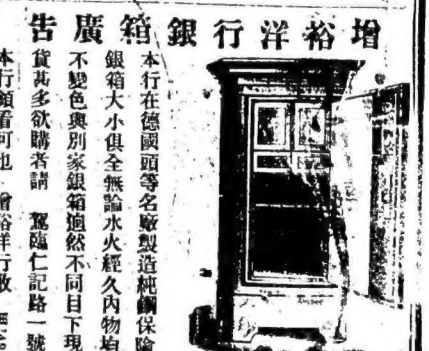 增裕洋行銀箱廣告
本行在德國頭等名廠製造純鋼保險
銀箱大小俱全無論水火經久內物均
不變色與別家銀箱迥然不同目下現
貨甚多欲購者請 駕臨仁記路一號
本行面看可也 增裕洋行啟